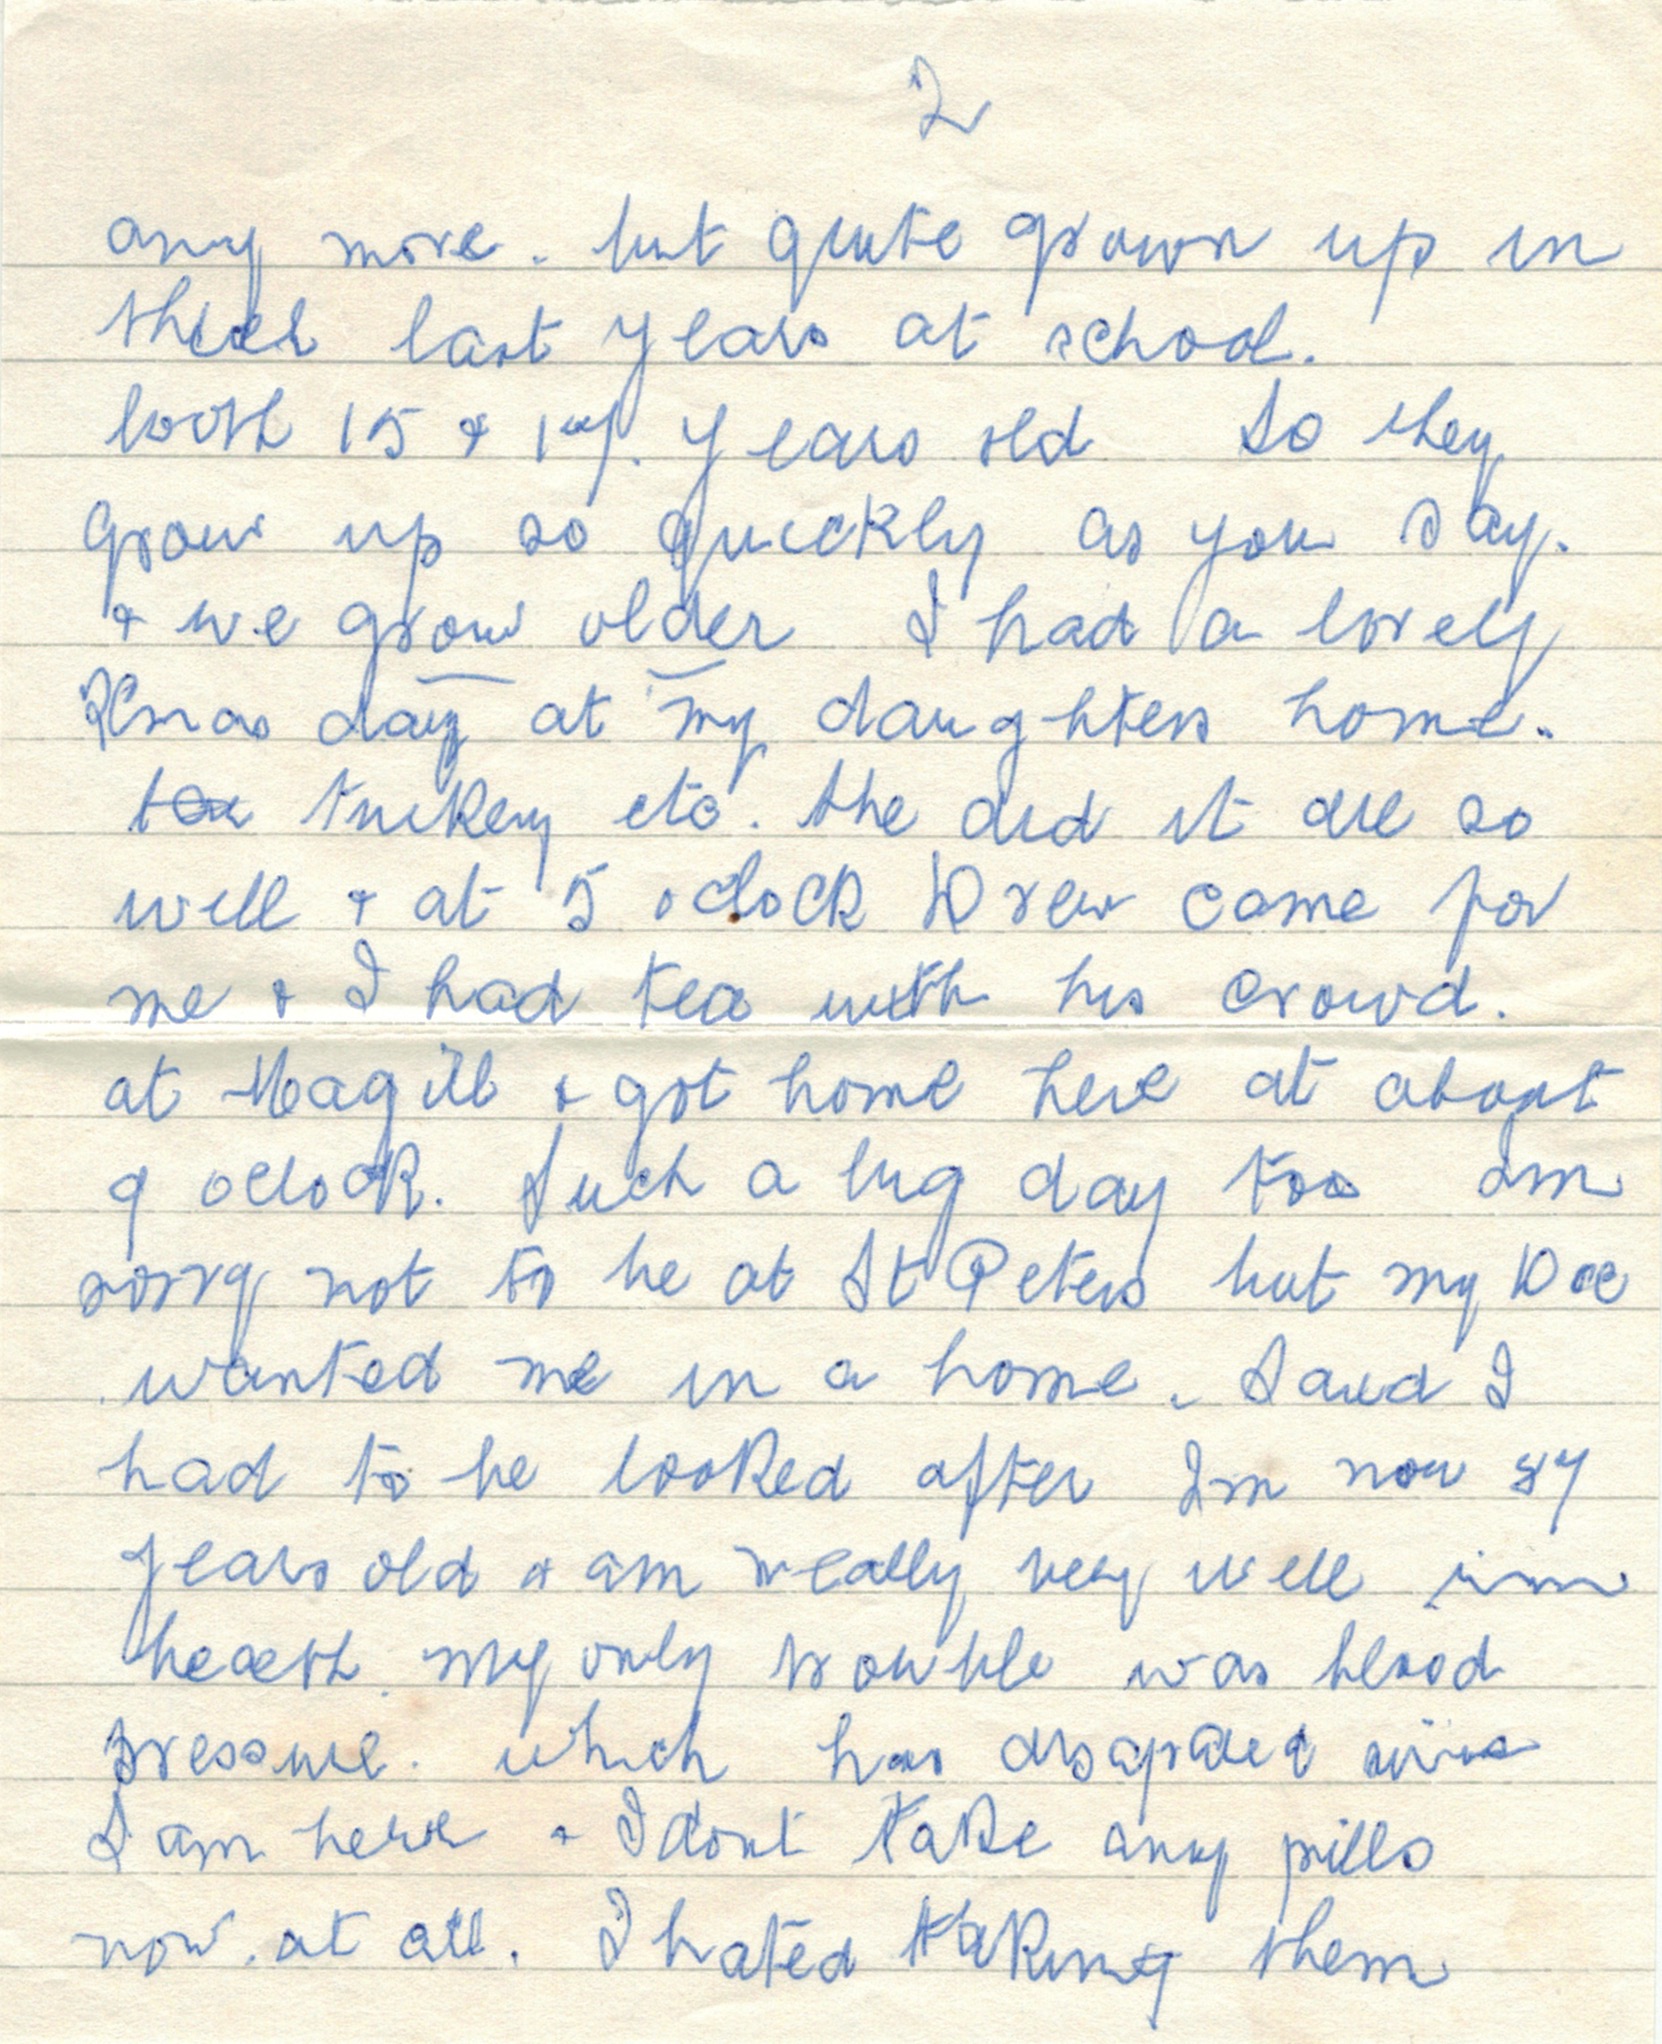 2
any more. but quite grown up in
their last years at school.
both 15 & 17. years old So they
grow up so quickly as you say.
& we grow older I had a lovely
Xmas day at my daughters home.
turkey etc. She did it all so
well & at 5 oclock Drew came for
me & I had tea with his crowd.
at Magill & got home here at about
9 oclock. Such a big day too Im
sorry not to be at St Peters but my Doc
wanted me in a home. Said I
had to be looked after Im now 87
years old & am really very well in
health. My only trouble was blood
pressure. which has
I am here & I dont take any pills
now. at all. I hated taking them